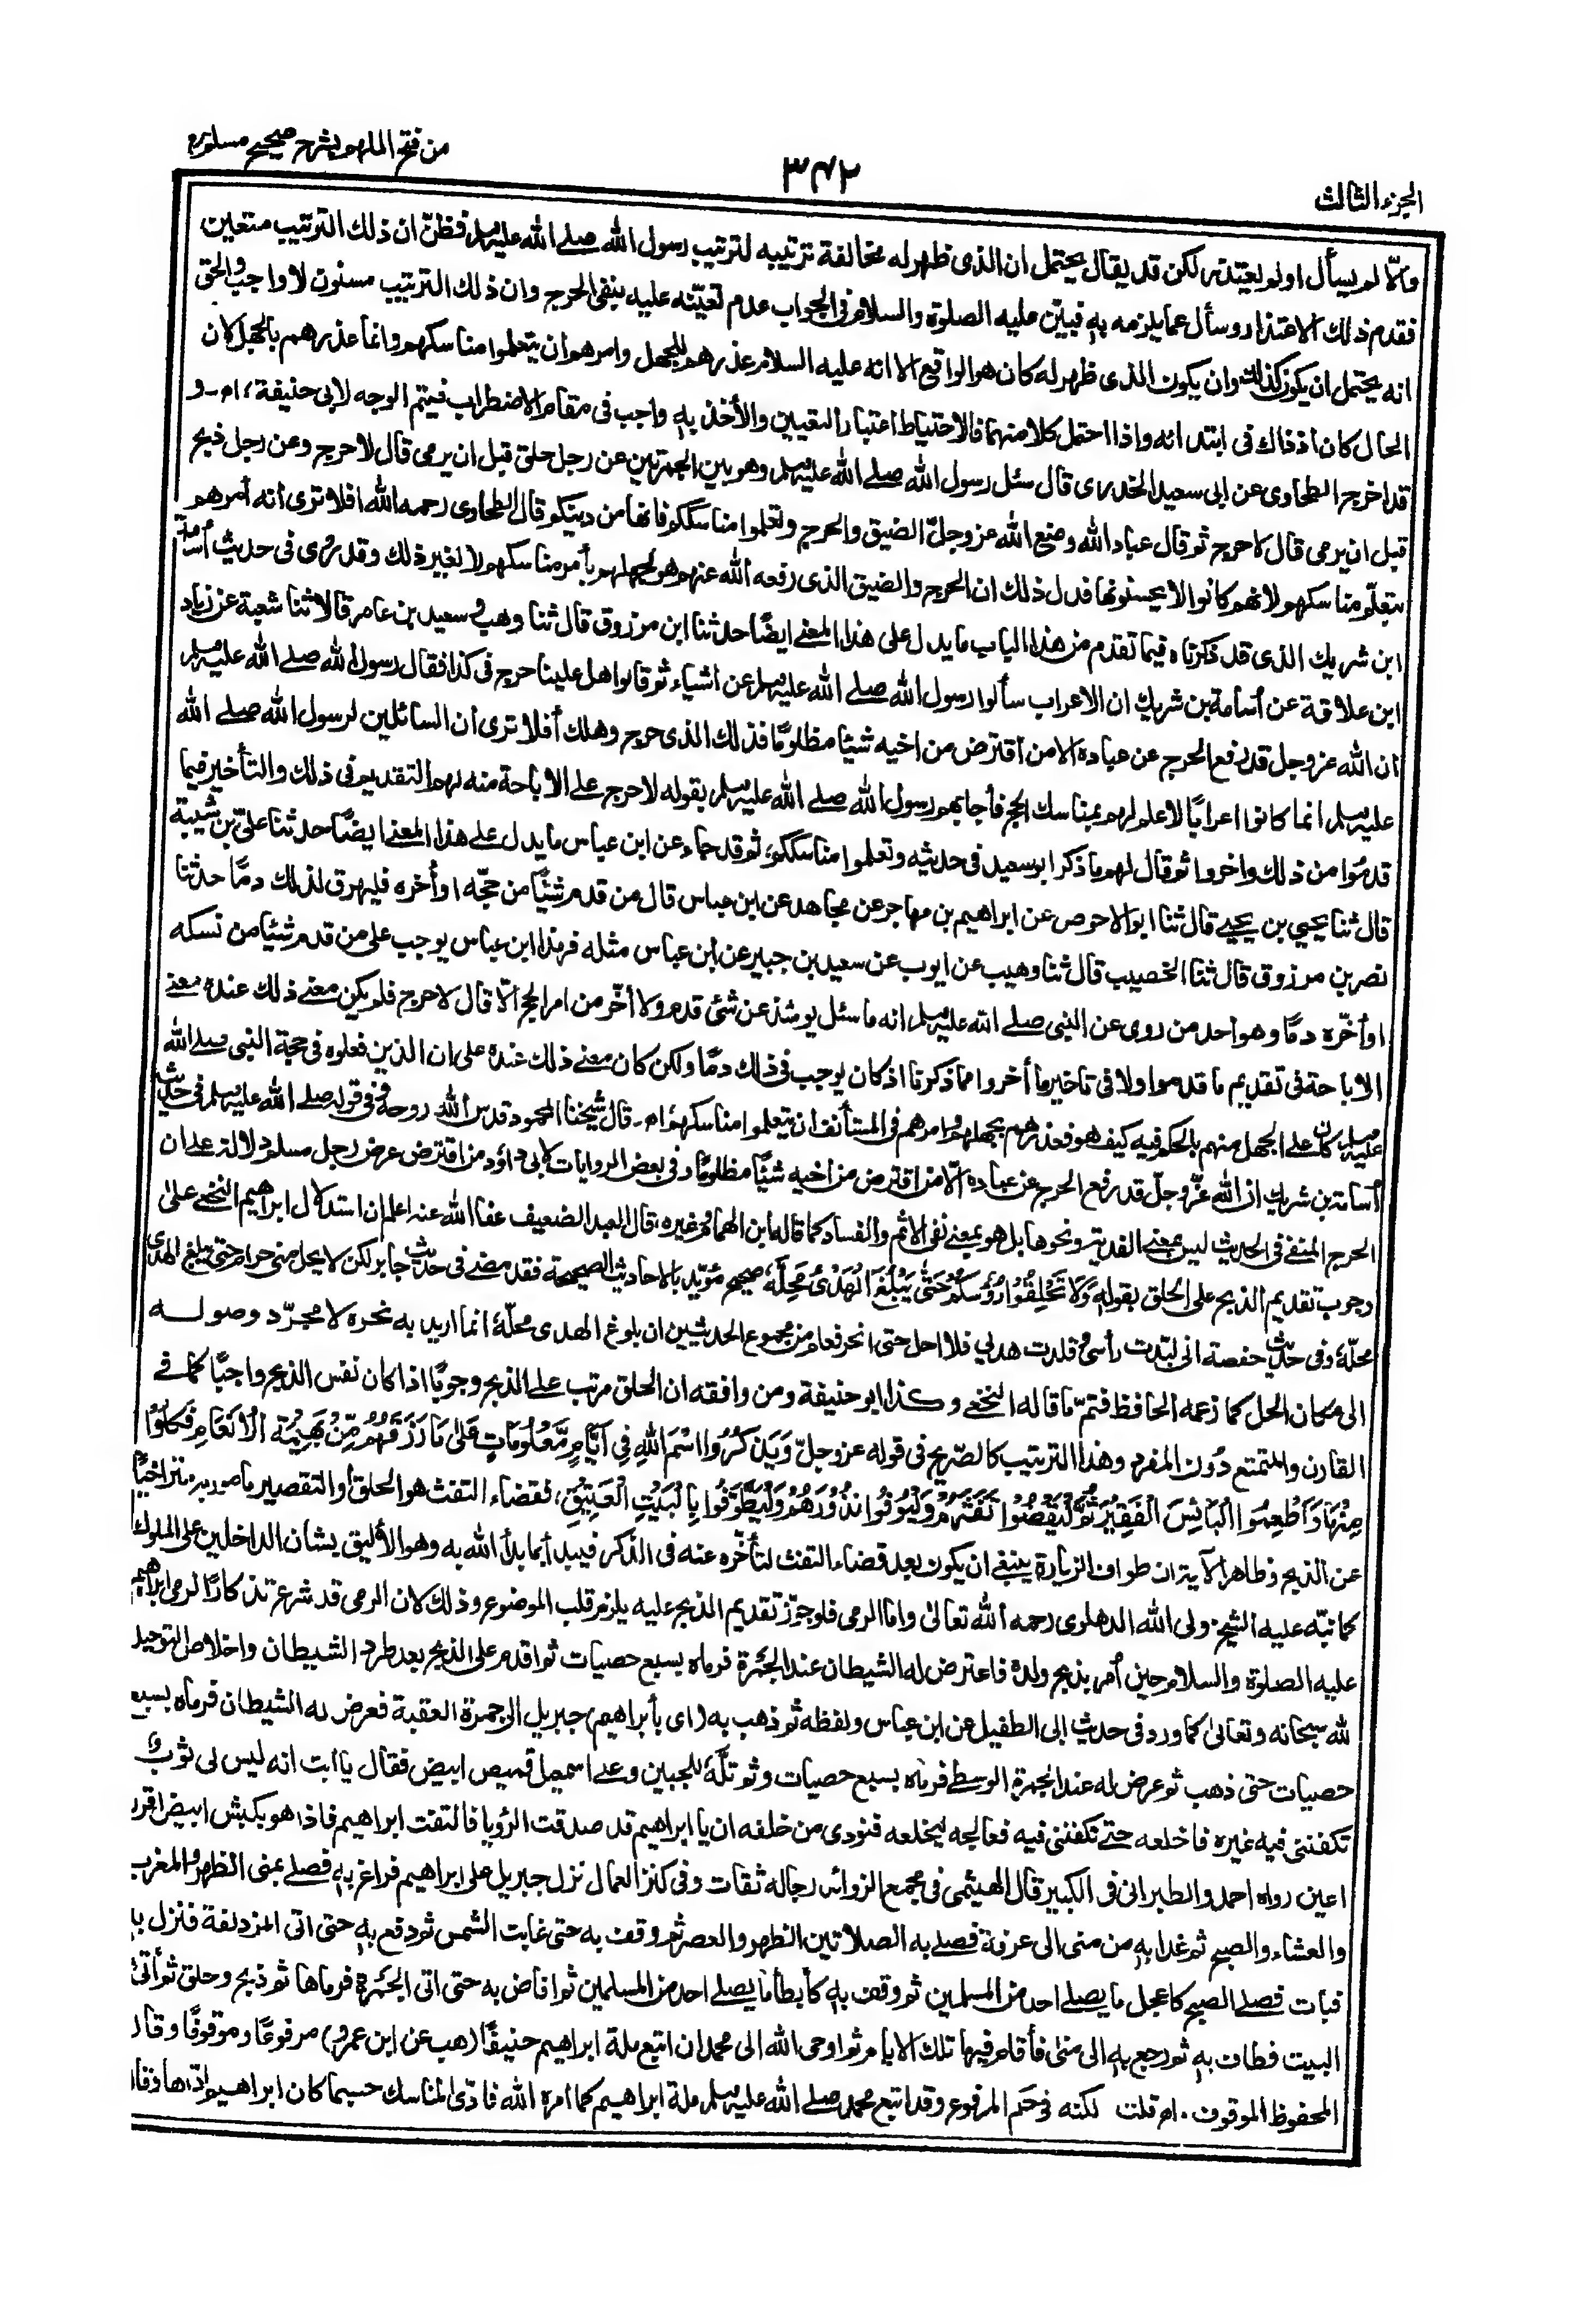 الجزء الثالث
٣٤٢
من فتح الملهم بشرح صحيح مسلم
والا لم يسأل او لم يعتذر لكن قد يقال يحتمل ان الذى ظهر له مخالفة ترتيبه لترتيب رسول الله صلے الله عليه وسلم فظنّ ان ذلك الترتيب متعين
فقدم ذلك الاعتذار وسأل عما يلزمه به فبيّن عليه الصلوة والسلام فى الجواب عدم تعيّنه عليه بنفى الحرج وان ذلك الترتيب مسنون لا واجب والحق
انه يحتمل ان يكون كذلك وان يكون الذى ظهر له كان هو الواقع الا انه عليه السلام عذرهم للجهل وامرهم ان يتعلموا مناسكهم وانما عذرهم بالجهل لان
الحال كان اذ ذاك فى ابتدائه واذا احتمل كلا منهما فالاحتياط اعتبار التعيين والأخذ به واجب فى مقام الاضطراب فيتم الوجه لابى حنيفة، اھ۔ و
قد اخرج الطحاوى عن ابى سعيد الخدرى قال سئل رسول الله صلے الله عليه وسلم وهو بين الجمرتين عن رجل حلق قبل ان يرمى قال لا حرج وعن رجل ذبح
قبل ان يرمى قال لا حرج ثم قال عباد الله وضع الله عز وجلّ الضيق والحرج وتعلموا مناسككم فانها من دينكم قال الطحاوى رحمه الله افلا ترى انه امرهم
بتعلّم مناسكهم لانهم كانوا لا يحسنونها فدل ذلك ان الحرج والضيق الذى رفعه الله عنهم هو لجهلهم بأمر مناسكهم لا لغير ذلك وقد روى فى حديث أسامة
ابن شريك الذى قد ذكرناه فيما تقدم من هذا الباب ما يدل على هذا المعنے ايضًا حدثنا ابن مرزوق قال ثنا وهب وسعيد بن عامر قالا ثنا شعبة عن زياد
ابن علاقة عن أسامة بن شريك ان الاعراب سألوا رسول الله صلے الله عليه وسلم عن اشياء ثم قالوا هل علينا حرج فى كذا فقال رسول الله صلے الله عليه وسلم
ان الله عز وجل قد رفع الحرج عن عباده الا من اقترض من اخيه شيئا مظلومًا فذلك الذى حرج وهلك أفلا ترى ان السائلين لرسول الله صلے الله
عليه وسلم انما كانوا اعرابًا لا علم لهم بمناسك الحج فأجابهم رسول الله صلے الله عليه وسلم بقوله لا حرج على الاباحة منه لهم التقديم فى ذلك والتأخير فيما
قدموا من ذلك واخروا ثم قال لهم ما ذكر ابو سعيد فى حديثه وتعلموا مناسككم، ثم قد جاء عن ابن عباس ما يدل علے هذا المعنے ايضًا حدثنا علىّ بن شيبة
قال ثنا يحيى بن يحيے قال ثنا ابو الاحوص عن ابراهيم بن مهاجر عن مجاهد عن ابن عباس قال من قدم شيئًا من حجّه او أخره فليهرق لذلك دمًا حدثنا
نصر بن مرزوق قال ثنا الخصيب قال ثنا وهيب عن ايوب عن سعيد بن جبير عن ابن عباس مثله فهذا ابن عباس يوجب على من قدم شيئا من نسكه
او أخّره دمًا وهو احد من روى عن النبى صلے الله عليه وسلم انه ما سئل يومئذ عن شئ قدم ولا أخّر من امر الحج الّا قال لا حرج فلم يكن معنے ذلك عنده معنے
الاباحة فى تقديم ما قدموا ولا فى تاخير ما أخروا مما ذكرنا اذ كان يوجب فى ذلك دمًا ولكن كان معنے ذلك عنده على ان الذين فعلوه فى حجة النبى صلے الله
عليه وسلم كان علے الجهل منهم بالحكم فيه كيف هو فعذرهم بجهلهم وامرهم فى المستأنف ان يتعلموا مناسكهم، اھ۔ قال شيخنا المحمود قدس الله روحه فى قوله صلے الله عليه وسلم فى حديث
أسامة بن شريك ان الله عزّ وجلّ قد رفع الحرج عن عباده الّا من اقترض من اخيه شيئًا مظلومًا، وفى بعض الروايات لابى داؤد من اقترض عرض رجل مسلم دلالة على ان
الحرج المنفے فى الحديث ليس بمعنے الفدية ونحوها بل هو بمعنے نفى الاثم والفساد كما قاله ابن الهمام وغيره، قال العبد الضعيف عفا الله عنه اعلم ان استدلال ابراهيم النخعے علىٰ
وجوب تقديم الذبح على الحلق بقوله وَلَا تَحْلِقُوْا رُؤُسَكُمْ حَتّٰى يَبْلُغَ الْهَدْىُ مَحِلَّهٗ صحيح مؤيّد بالاحاديث الصحيحة فقد مضے فى حديث جابر لكن لا يحل منى حرام حتى يبلغ الهدى
محلّهٗ وفى حديث حفصة انى لبّدت رأسى وقلدت هديى فلا احل حتى انحر فعلم من مجموع الحديثين ان بلوغ الهدى محلّهٗ انما اريد به نحره لا مجرّد وصوله
الى مكان الحل كما زعمه الحافظ فتمّ ما قاله النخعے وكذا ابو حنيفة ومن وافقه ان الحلق مرتب على الذبح وجوبًا اذا كان نفس الذبح واجبًا كما فے
القارن والمتمتع دُون المفرد وهذا الترتيب كالصّريح فى قوله عز وجلّ وَيَذْكُرُوا اسْمَ اللهِ فِي اَيَّامٍ مَّعْلُوْمَاتٍ عَلٰى مَا رَزَقَهُمْ مِّنْ بَهِيْمَةِ الْاَنْعَامِ فَكُلُوْا
مِنْهَا وَاَطْعِمُوا الْبَائِسَ الْفَقِيْرَ ثُمَّ لْيَقْضُوْا تَفَثَهُمْ وَلْيُوْفُوْا نُذُوْرَهُمْ وَلْيَطَّوَّفُوا بِالْبَيْتِ الْعَتِيْقِ، فقضاء التفث هو الحلق أو التقصير مأمور به متراخيًا
عن الذبح وظاهر الآية ان طواف الزيارة ينبغے ان يكون بعد قضاء التفث لتأخّره عنه فى الذكر فيبدأ بما بدأ الله به وهو الأليق بشان الداخلين على الملوك
كما نبّه عليه الشيخ ولى الله الدهلوى رحمه الله تعالىٰ واما الرمى فلو جوّز تقديم الذبح عليه يلزم قلب الموضوع وذلك لان الرمى قد شرع تذكارًا لرمى ابراهيم
عليه الصلوة والسلام حين أمر بذبح ولده فاعترض له الشيطان عند الجمرة فرماه بسبع حصيات ثم اقدم على الذبح بعد طرد الشيطان واخلاص التوحيد
لله سبحانه وتعالىٰ كما ورد فى حديث ابى الطفيل عن ابن عباس ولفظه ثم ذهب به (اى بأبراهيم) جبريل الى جمرة العقبة فعرض له الشيطان فرماه بسبع
حصيات حتى ذهب ثم عرض له عند الجمرة الوسطے فرماه بسبع حصيات وثم تلّهٗ للجبين وعلے اسمعيل قميص ابيض فقال يا ابت انه ليس لى ثوب
تكفننى فيه غيره فاخلعه حتے تكفننى فيه فعالجه ليخلعه فنودى من خلفه ان يا ابراهيم قد صدقت الرؤيا فالتفت ابراهيم فاذا هو بكبش ابيض اقرن
اعين رواه احمد والطبرانى فى الكبير قال الهيثمى فى مجمع الزوائد رجاله ثقات وفى كنز العمال نزل جبريل على ابراهيم فراغ به فصلے بمنى الظهر والمغرب
والعشاء والصبح ثم غدا به من منى الى عرفة فصلے به الصلاتين الظهر والعصر ثم وقف به حتى غابت الشمس ثم دفع به حتى اتى المزدلفة فنزل بها
فبات فصلے الصبح كاعجل ما يصلے احد من المسلمين ثم وقف به كأبطأ ما يصلے احد من المسلمين ثم افاض به حتى اتى الجمرة فرماها ثم ذبح وحلق ثم أتى
البيت فطاف به ثم رجع به الى منىٰ فأقام فيها تلك الايام ثم اوحى الله الى محمد ان اتبع ملة ابراهيم حنيفًا (هب عن ابن عمرو) مرفوعًا وموقوفًا وقال
المحفوظ الموقوف. اھ قلت لكنه فى حكم المرفوع وقد اتبع محمد صلے الله عليه وسلم ملة ابراهيم كما امره الله فادّى المناسك حسبما كان ابراهيم ادّاها